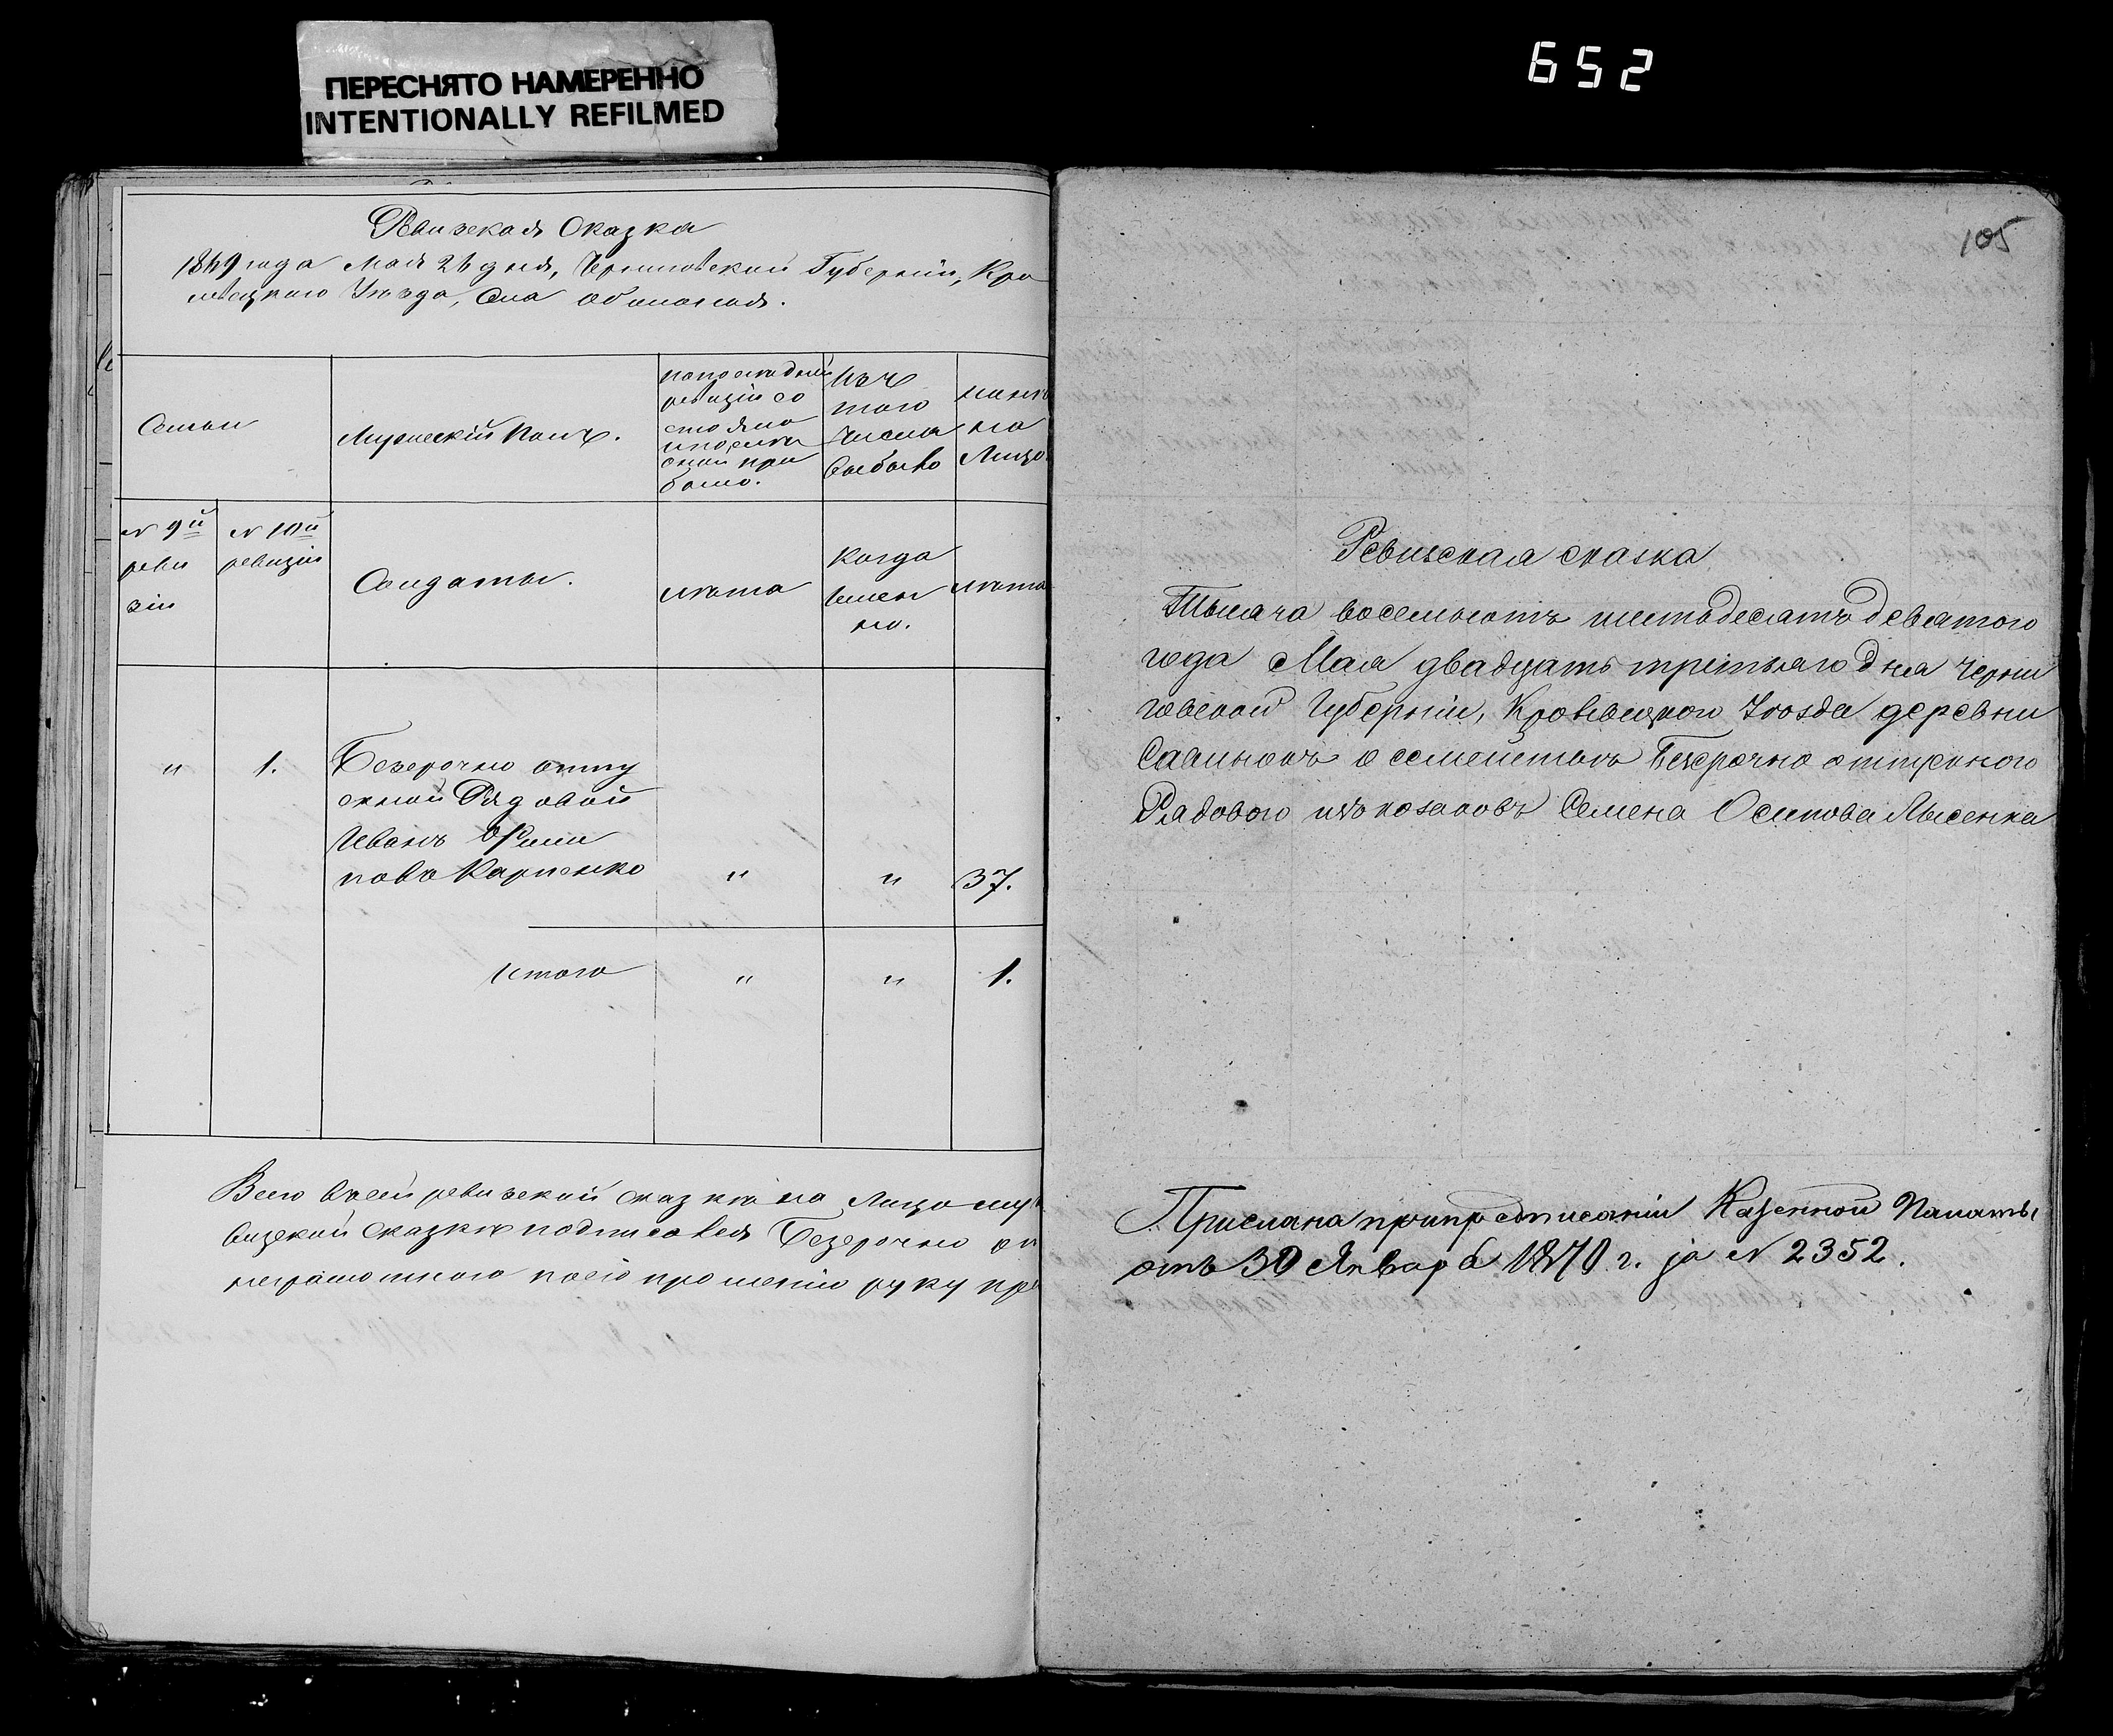 ПЕРЕСНЯТО НАМЕРЕННО
INTENTIONALLY REFILMED
652
Ревизская Сказка
1869 года Мая 26 дня, Черниговской Губерніи, Кро
левецкого Уѣзда, Села Оболонья.
Семьи
Мужескій Полъ.
попоследней
ревизіи со
стояло
ипослѣ
оной при
было.
Изъ
того
Числа
выбыло
нынѣ
на
Лицо
№ 9й
реви
зіи
№ 10й
ревизіи
Солдаты.
лѣта
когда
Имен
но.
лѣта
" 1. Безсрочно отпу
скной Рядовой
Иванъ
повъ Карпенко " " 37.
итого " " 1.
Всего въ сей ревизской сказкѣ на Лицо
визской Сказкѣ подписовся Безсрочно
неграмотного поего прошенію руку
105
Ревизская сказка
Тысяча восемьсотъ шестьдесятъ девятого
года Мая двадцать третьяго дня Черни
говской Губерніи, Кролевецкого Уѣзда деревни
о семействѣ Безсрочно отпускного
Рядового изъ козаковъ Семена Осипова Лысенка
Прислана при предписаніи Казенной Палаты
отъ 30 Января 1870 г. за № 2352.